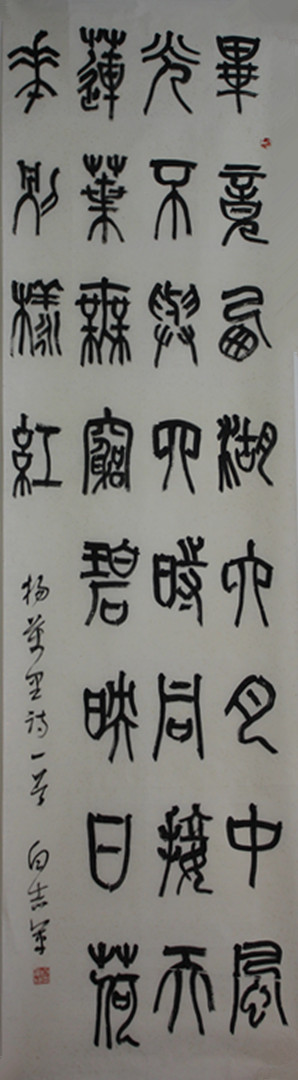 畢竟西湖六月中風
光不與四時同接天
蓮葉無窮碧映日荷
花別樣紅
楊萬里詩一首 白